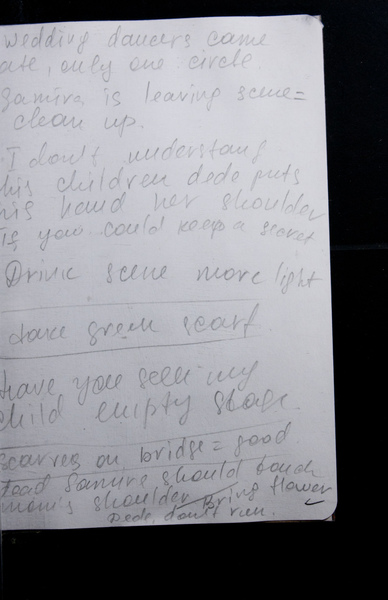 wedding dancers came
late, only one circle.
Samira is leaving scene =
clean up.
I don't understand
his children dede puts
his hand her shoulder
If you could keep a secret
Drink scene more light
take green scarf
have you seen my
child empty stage.
scarves on bridge = good
Samire should touch
mom's shoulder Bring flower
Dede, don't run.